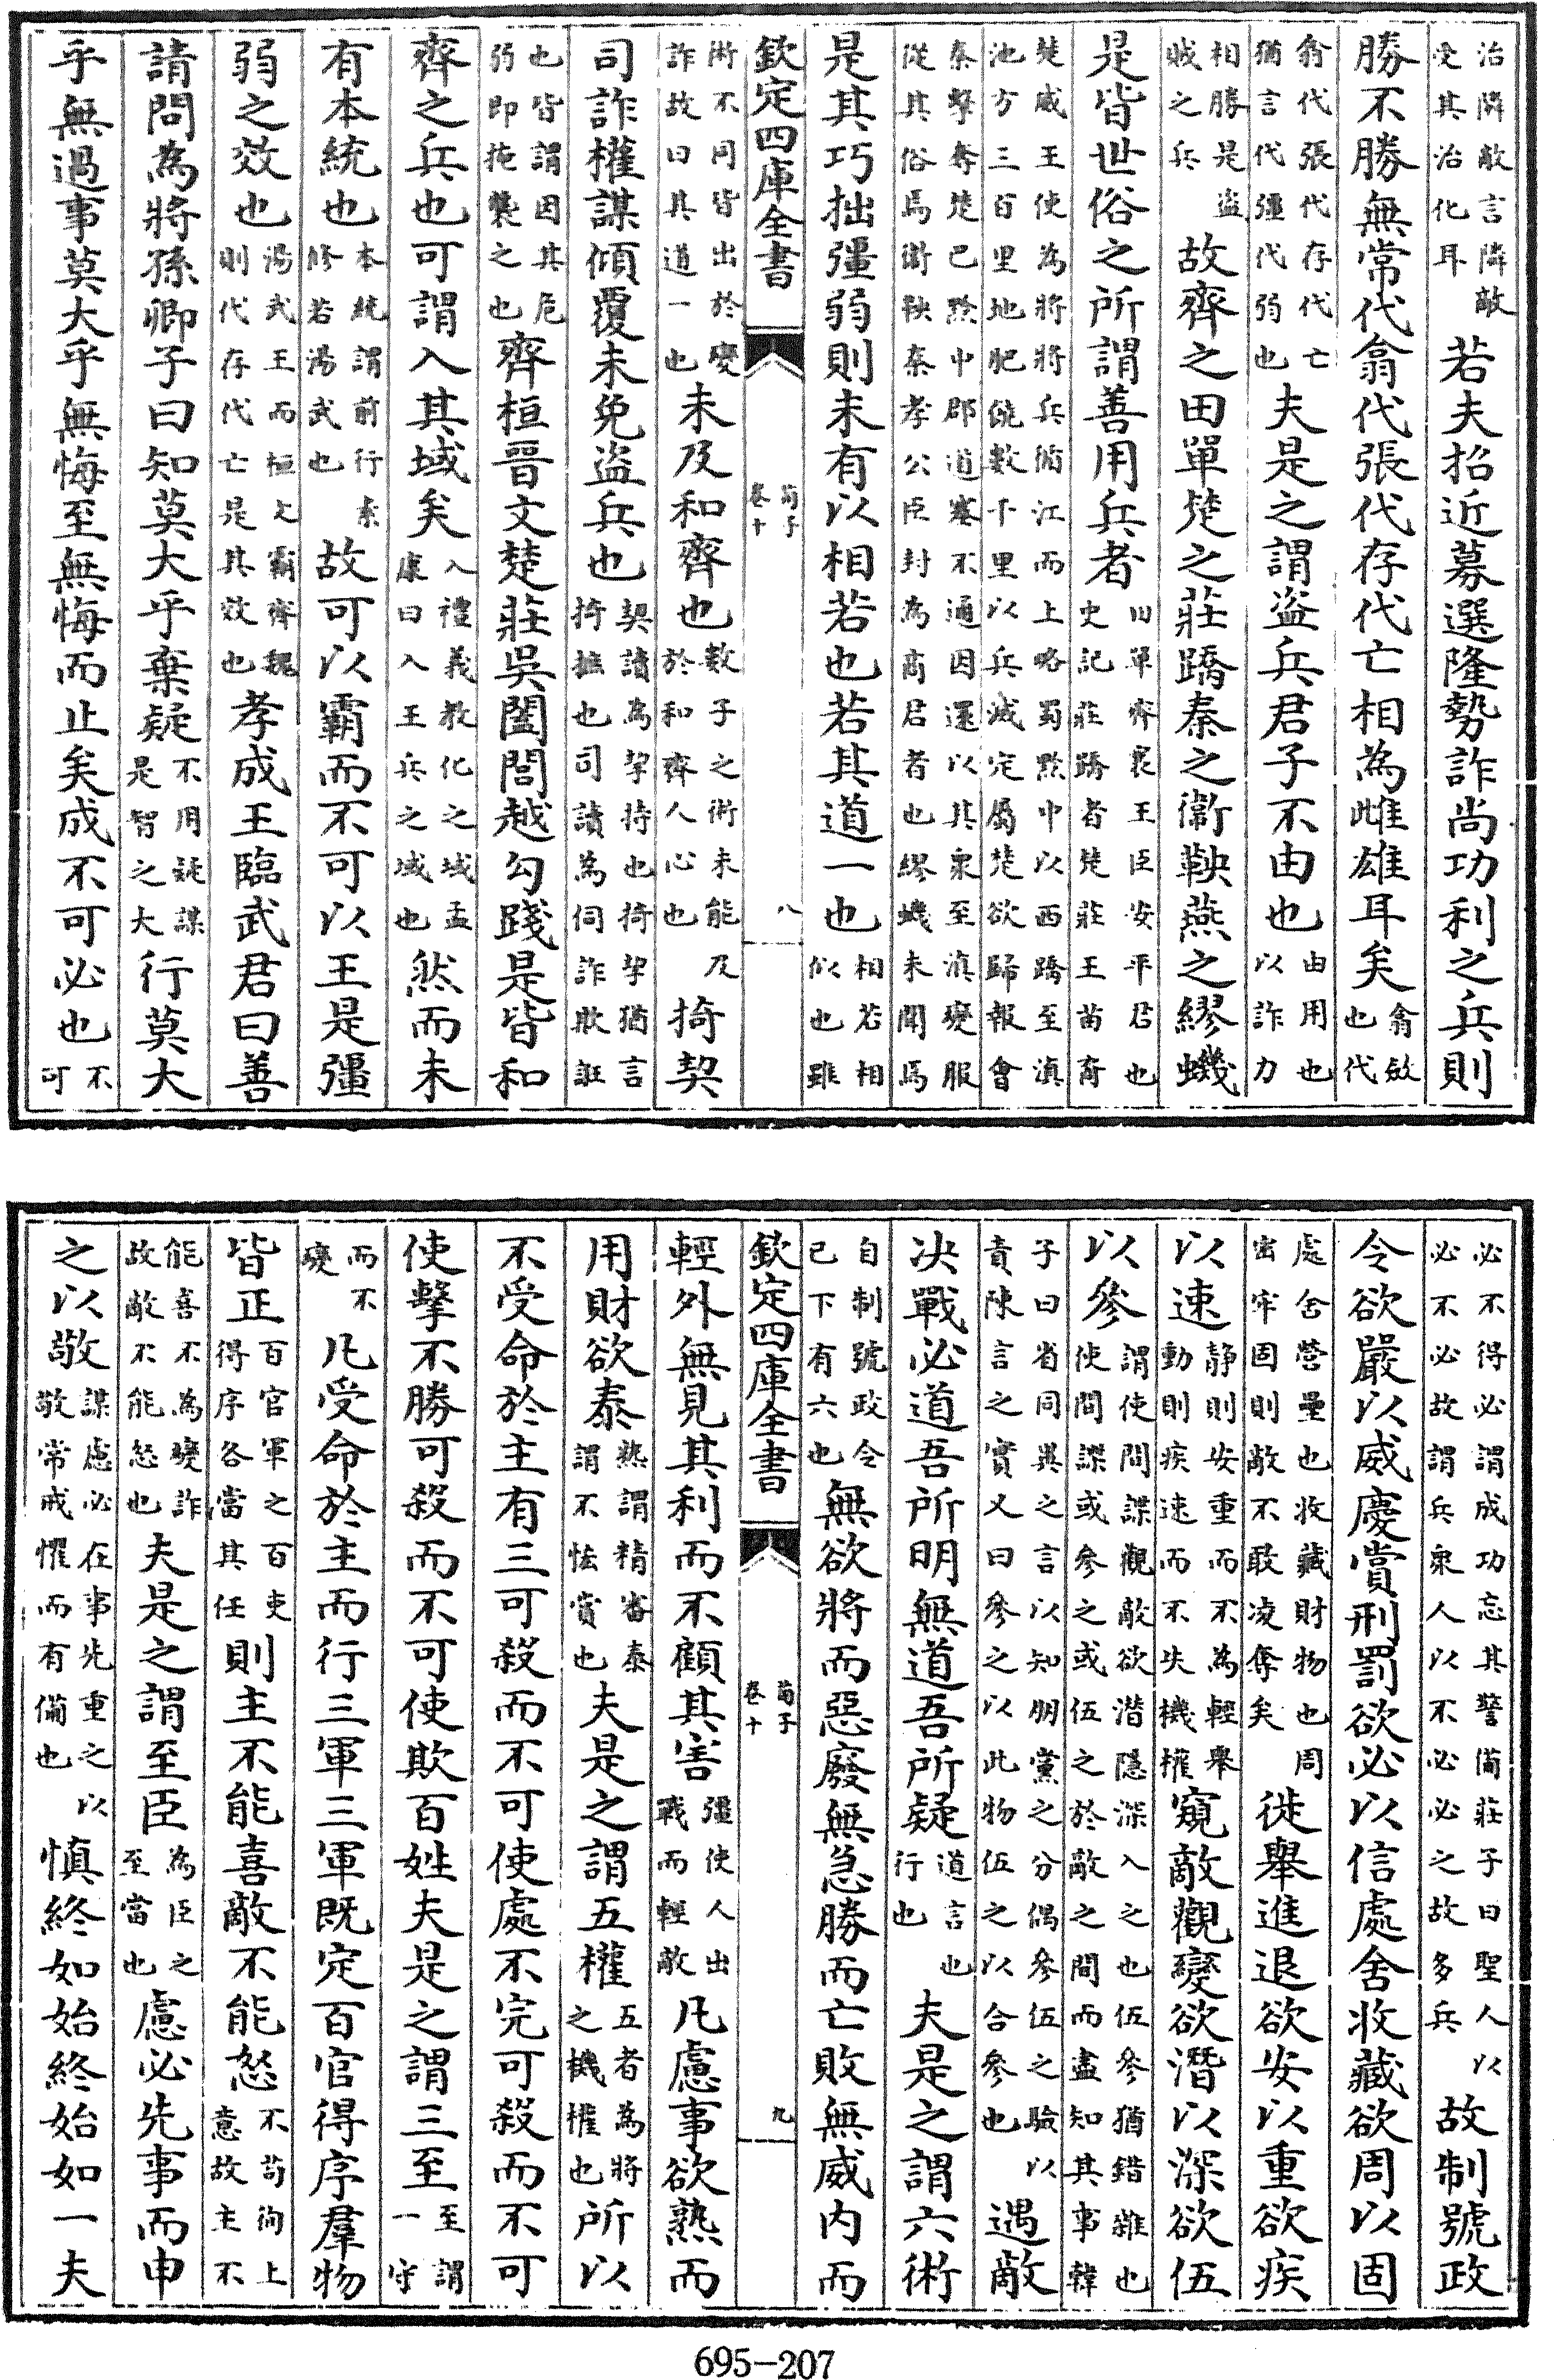 治隣敵言隣敵受其治化耳若夫招近募選隆勢詐尚功利之兵則
勝不勝無常代翕代張代存代亡相為雌雄耳矣翕斂也代
翕代張代存代亡猶言代彊代弱也夫是之謂盜兵君子不由也由用也以詐力
相勝是盜賊之兵故齊之田單楚之莊蹻秦之衞鞅燕之繆蟣
是皆世俗之所謂善用兵者田單齊襄王臣安平君也史記莊蹻者楚莊王苗裔
楚威王使為將將兵循江而上略蜀黔中以西蹻至滇池方三百里地肥饒數千里以兵滅定屬楚欲歸報會
秦擊奪楚巴黔中郡道塞不通因還以其衆至滇變服從其俗焉衞鞅秦孝公臣封為商君者也繆蟣未聞焉
是其巧拙彊弱則未有以相若也若其道一也相若相似也雖
欽定四庫全書 荀子卷十 八
術不同皆出於變詐故曰其道一也未及和齊也數子之術未能及於和齊人心也掎契
司詐權謀傾覆未免盜兵也契讀為挈挈持也掎挈猶言掎摭也司讀為伺詐欺誑
也皆謂因其危弱即掩襲之也齊桓晉文楚莊吳闔閭越勾踐是皆和
齊之兵也可謂入其域矣入禮義教化之域孟康曰入王兵之域也然而未
有本統也本統謂前行素修若湯武也故可以霸而不可以王是彊
弱之效也湯武王而桓文霸齊魏則代存代亡是其效也孝成王臨武君曰善
請問為將孫卿子曰知莫大乎棄疑不用疑謀是智之大行莫大
乎無過事莫大乎無悔至無悔而止矣成不可必也不可
必不得必謂成功忘其警備莊子曰聖人以必不必故謂兵衆人以不必必之故多兵故制號政
令欲嚴以威慶賞刑罰欲必以信處舍收藏欲周以固
處舍營壘也收藏財物也周密牢固則敵不敢凌奪矣徙舉進退欲安以重欲疾
以速静則安重而不為輕舉動則疾速而不失機權窺敵觀變欲潛以深欲伍
以參謂使間諜觀敵欲潛隱深入之也伍參猶錯雜也使間諜或參之或伍之於敵之間而盡知其事韓
子曰省同異之言以知朋黨之分偶參伍之驗以責陳言之實又曰參之以此物伍之以合參也遇敵
決戰必道吾所明無道吾所疑道言也行也夫是之謂六術
自制號政令已下有六也無欲將而惡廢無急勝而亡敗無威内而
欽定四庫全書 荀子卷十 九
輕外無見其利而不顧其害彊使人出戰而輕敵凡慮事欲熟而
用財欲泰熟謂精審泰謂不恡賞也夫是之謂五權五者為將之機權也所以
不受命於主有三可殺而不可使處不完可殺而不可
使擊不勝可殺而不可使欺百姓夫是之謂三至至謂一守
而不變凡受命於主而行三軍三軍既定百官得序羣物
皆正百官軍之百吏得序各當其任則主不能喜敵不能怒不苟徇上意故主不
能喜不為變詐故敵不能怒也夫是之謂至臣為臣之至當也慮必先事而申
之以敬謀慮必在事先重之以敬常戒懼而有備也慎終如始終始如一夫
695-207